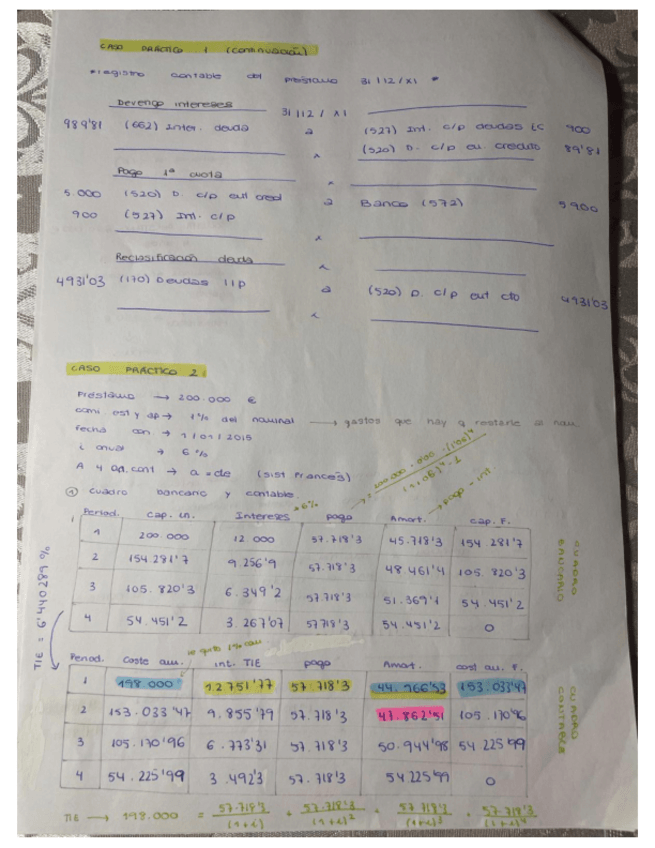 CASO PRÁCTICO 1 (continuación)
* registro contable del préstamo 31/12/X1 *
Devengo intereses
31/12/X1
989'81 (662) Inter. deuda a (527) Int. c/p deudas EC 900
(520) D. c/p en. credito 89'81
Pago 1ª cuota
5.000 (520) D. c/p ent cred a Banco (572) 5.900
900 (527) Int. c/p
Reclasificación deuda
4931'03 (170) Deudas l/p a (520) D. c/p ent cto 4931'03
CASO PRÁCTICO 2:
Préstamo → 200.000 €
comi est y ap → 1% del nominal → gastos que hay q restarle al nom.
fecha con → 1/01/2015
i anual → 6%
A 4 añ. cont → a = cte (sist Frances)
① Cuadro bancario y contable.
·6%
→ pago - int.
Period. Cap. in. Intereses pago Amort. cap. F.
1 200.000 12.000 57.718'3 45.718'3 154.281'7
2 154.281'7 9.256'9 57.718'3 48.461'4 105.820'3
3 105.820'3 6.349'2 57.718'3 51.369'1 54.451'2
4 54.451'2 3.267'07 57.718'3 54.451'2 0
CUADRO BANCARIO
TIE = 6'440289 %
Period. Coste am. int. TIE pago Amort. cost am. F.
1 198.000 12.751'77 57.718'3 44.966'53 153.033'47
2 153.033'47 9.855'79 57.718'3 47.862'51 105.170'96
3 105.170'96 6.773'31 57.718'3 50.944'98 54.225'99
4 54.225'99 3.492'3 57.718'3 54.225'99 0
CUADRO CONTABLE
TIE → 198.000 = 57.718'3/(1+i) + 57.718'3/(1+i)² + 57.718'3/(1+i)³ + 57.718'3/(1+i)⁴